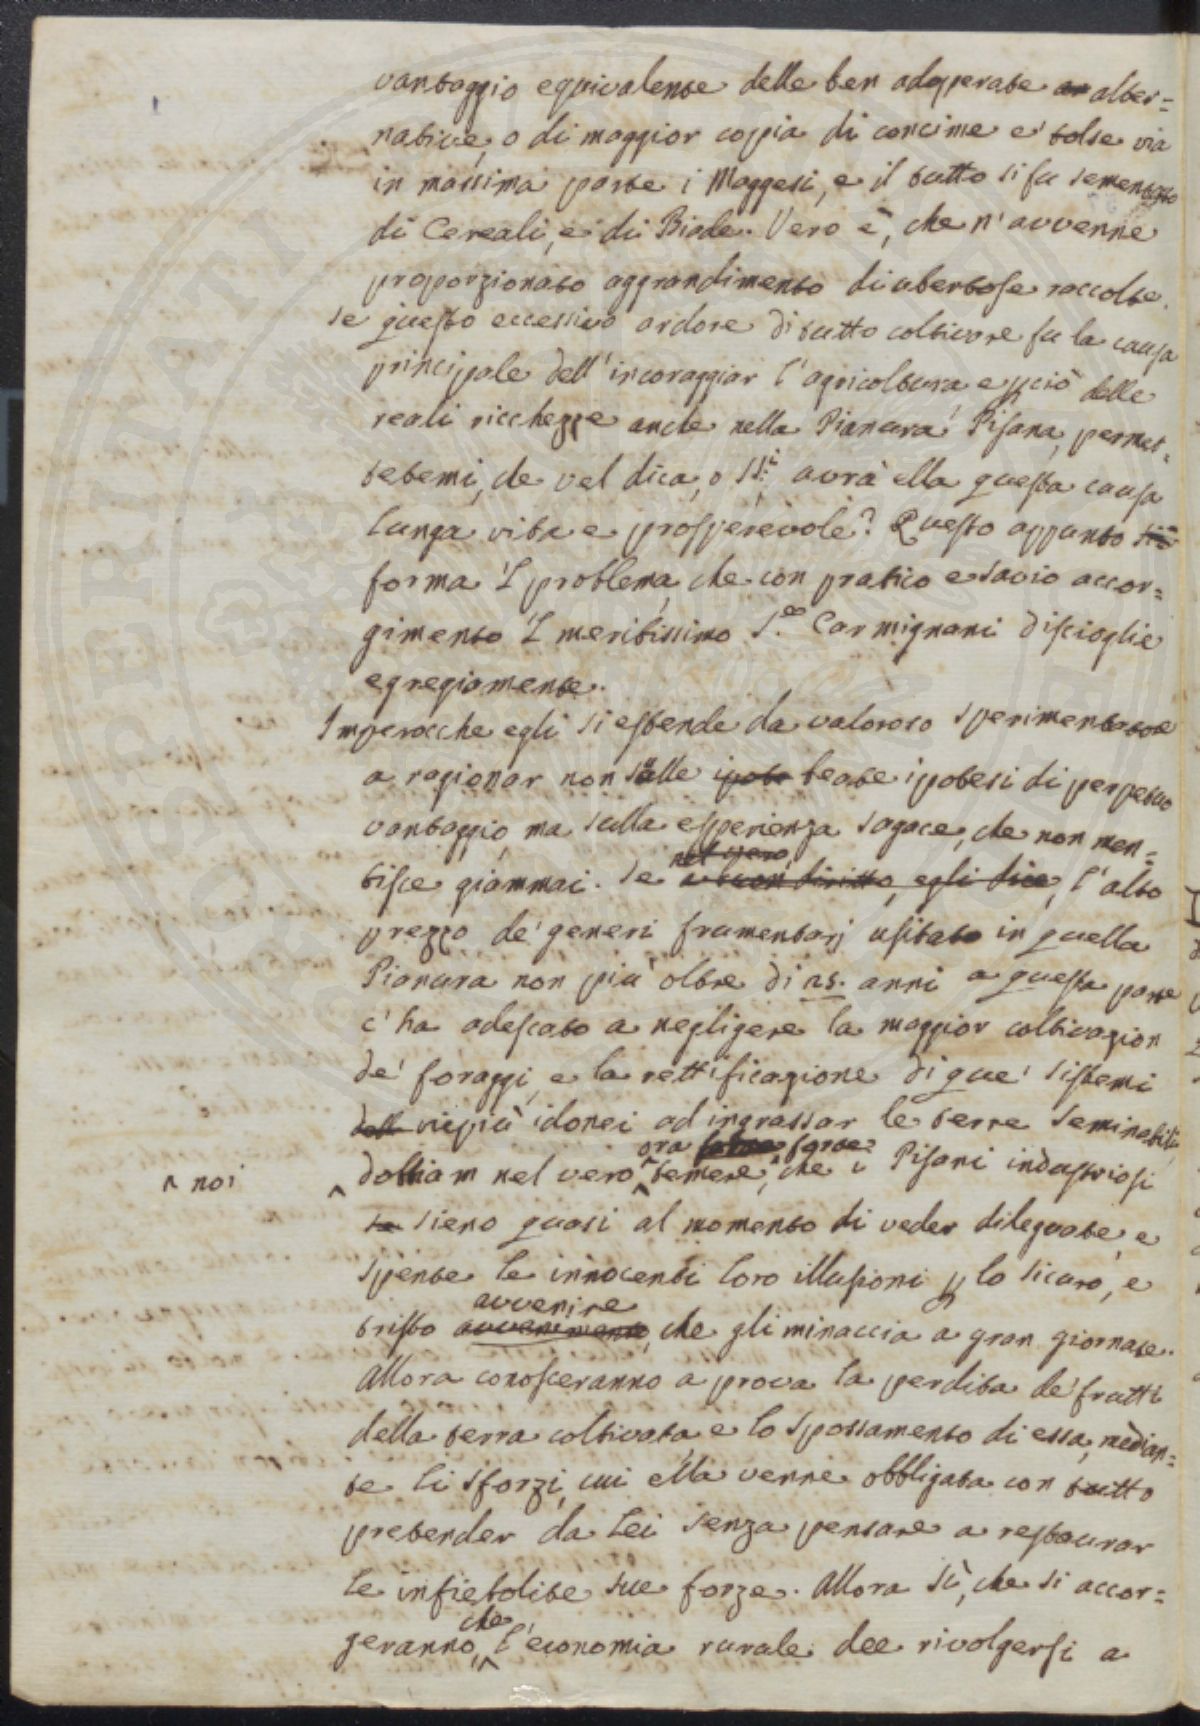 vantaggio equivalente delle ben adoperate alter=
native, o di maggior copia di concime e' tolse via
in massima parte i Maggesi, e il tutto si fu sementato
di Cereali, e di Biade. Vero è, che n'avvenne
proporzionato aggrandimento di ubertose raccolte.
se questo eccessivo ardore di tutto coltivare fu la causa
principale dell'incoraggiar l'agricoltura e pciò delle
reali ricchezze anche nella Pianura Pisana, permet=
tetemi, che vel dica, o SS:i avrà ella questa causa
lunga vita e prosperevole? Questo appunto
forma 'l problema, che con pratico e savio accor=
gimento 'l meritissimo S.e Carmignani discioglie
egregiamente.
Imperocche egli si estende da valoroso sperimentatore
a ragionar non sulle ipote beate ipotesi di perpetuo
vantaggio, ma sulla esperienza sagace, che non men=
nel vero,
tisce giammai. Se a buon diritto, egli dice, l'alto
prezzo de' generi frumentarj usitato in quella
Pianura non più oltre di 25. anni a questa parte
c'ha adescato a negligere la maggior coltivazion
de' foraggi, e la rettificazione di que' sistemi
dell viepiù idonei ad ingrassar le terre seminabili,
ora forse
^ noi ^ dobbiam nel vero ^ temere, ^ che i Pisani industriosi
se sieno quasi al momento di veder dileguate, e
spente le innocenti loro illusioni p lo sicuro, e
avvenire
tristo avvenimento, che gli minaccia a gran giornate.
Allora conosceranno a prova la perdita de' frutti
della terra coltivata, e lo spossamento di essa, median=
te li sforzi, cui ella venne obbligata con tutto
pretender da lei senza pensare a restaurar
le infiebolite sue forze. Allora sì, che si accor=
che
geranno, ^ l'economia rurale dee rivolgersi a